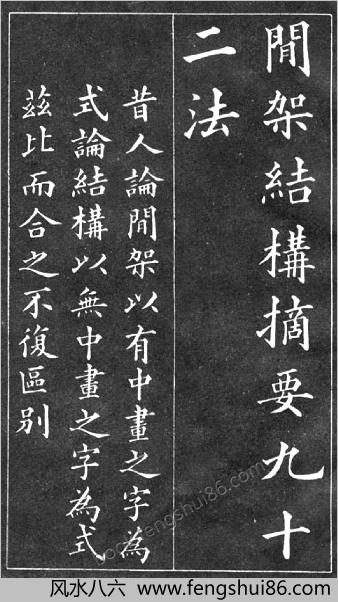 間架結構摘要九十
二法
昔人論間架以有中畫之字為
式論結構以無中畫之字為式
茲比而合之不復區別
www.fengshui86.com
风水八六 www.fengshui86.com